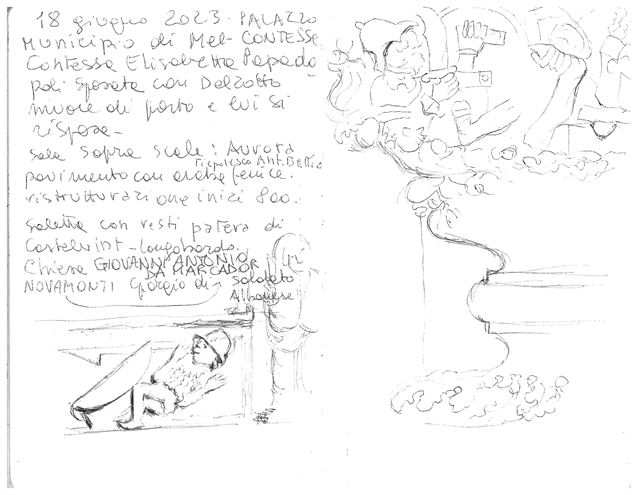 18 giugno 2023. PALAZZO
Municipio di Mel- CONTESSE
Contessa Elisabetta Popado
poi sposata con Dalzotto
muore di parto e lui si
risposa-
sala sopra scale: Aurora
Francesco Ant. Bettio
pavimento con araba fenice.
ristrutturazione inizi 800.
saletta con resti patera di
Castelvint - longobardo.
Chiesa GIOVANNI ANTONIO
DA MARCADOR
NOVAMONTI Giorgio di soldato
Albanese